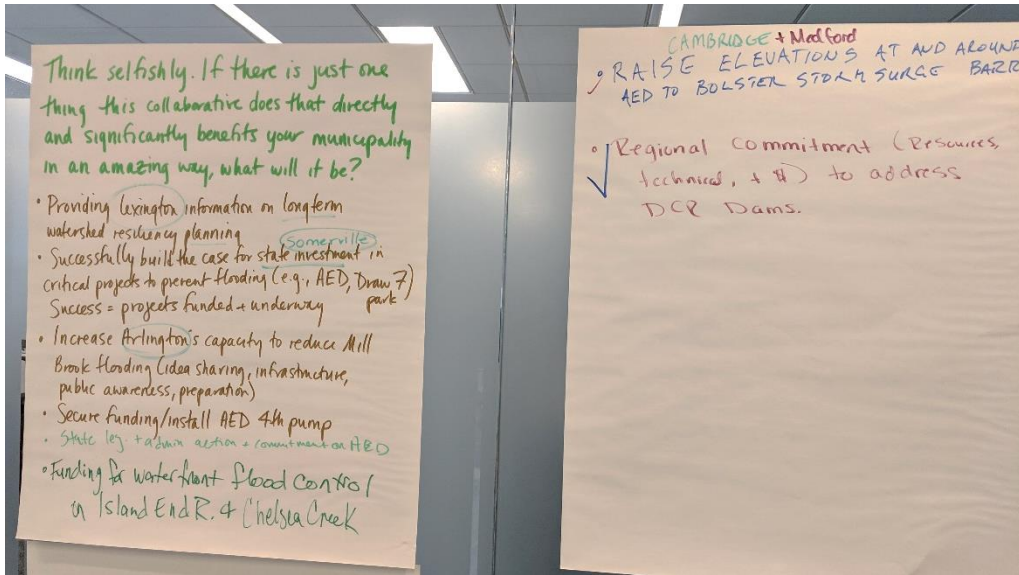 Think selfishly. If there is just one
thing this collaborative does that directly
and significantly benefits your municipality
in an amazing way, what will it be?
• Providing Lexington information on longterm
watershed resiliency planning
Somerville
• Successfully build the case for state investment in
critical projects to prevent flooding (e.g., AED, Draw 7
park)
Success = projects funded + underway
• Increase Arlington's capacity to reduce Mill
Brook flooding (idea sharing, infrastructure,
public awareness, preparation)
• Secure funding/install AED 4th pump
• State leg. + admin action + commitment on AED
• Funding for waterfront flood control
in Island End R. & Chelsea Creek
CAMBRIDGE + Medford
• RAISE ELEVATIONS AT AND AROUND
AED TO BOLSTER STORM SURGE BARR
• Regional commitment (Resources,
technical, + $) to address
DCR Dams.